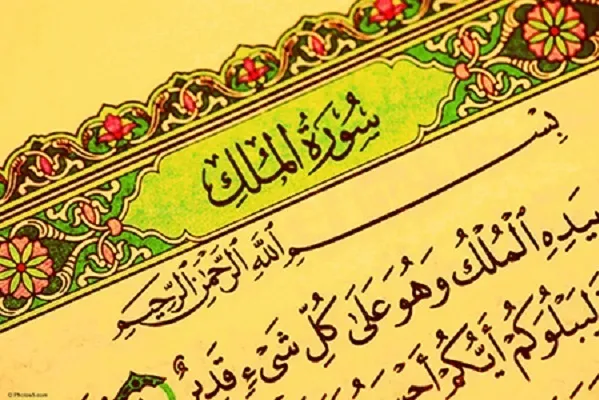 سُورَةُ المُلْكِ
بِسْمِ اللَّهِ الرَّحْمَٰنِ الرَّحِيمِ
بِيَدِهِ الْمُلْكُ وَهُوَ عَلَىٰ كُلِّ شَىْءٍ قَدِيرٌ
لِيَبْلُوَكُمْ أَيُّكُمْ